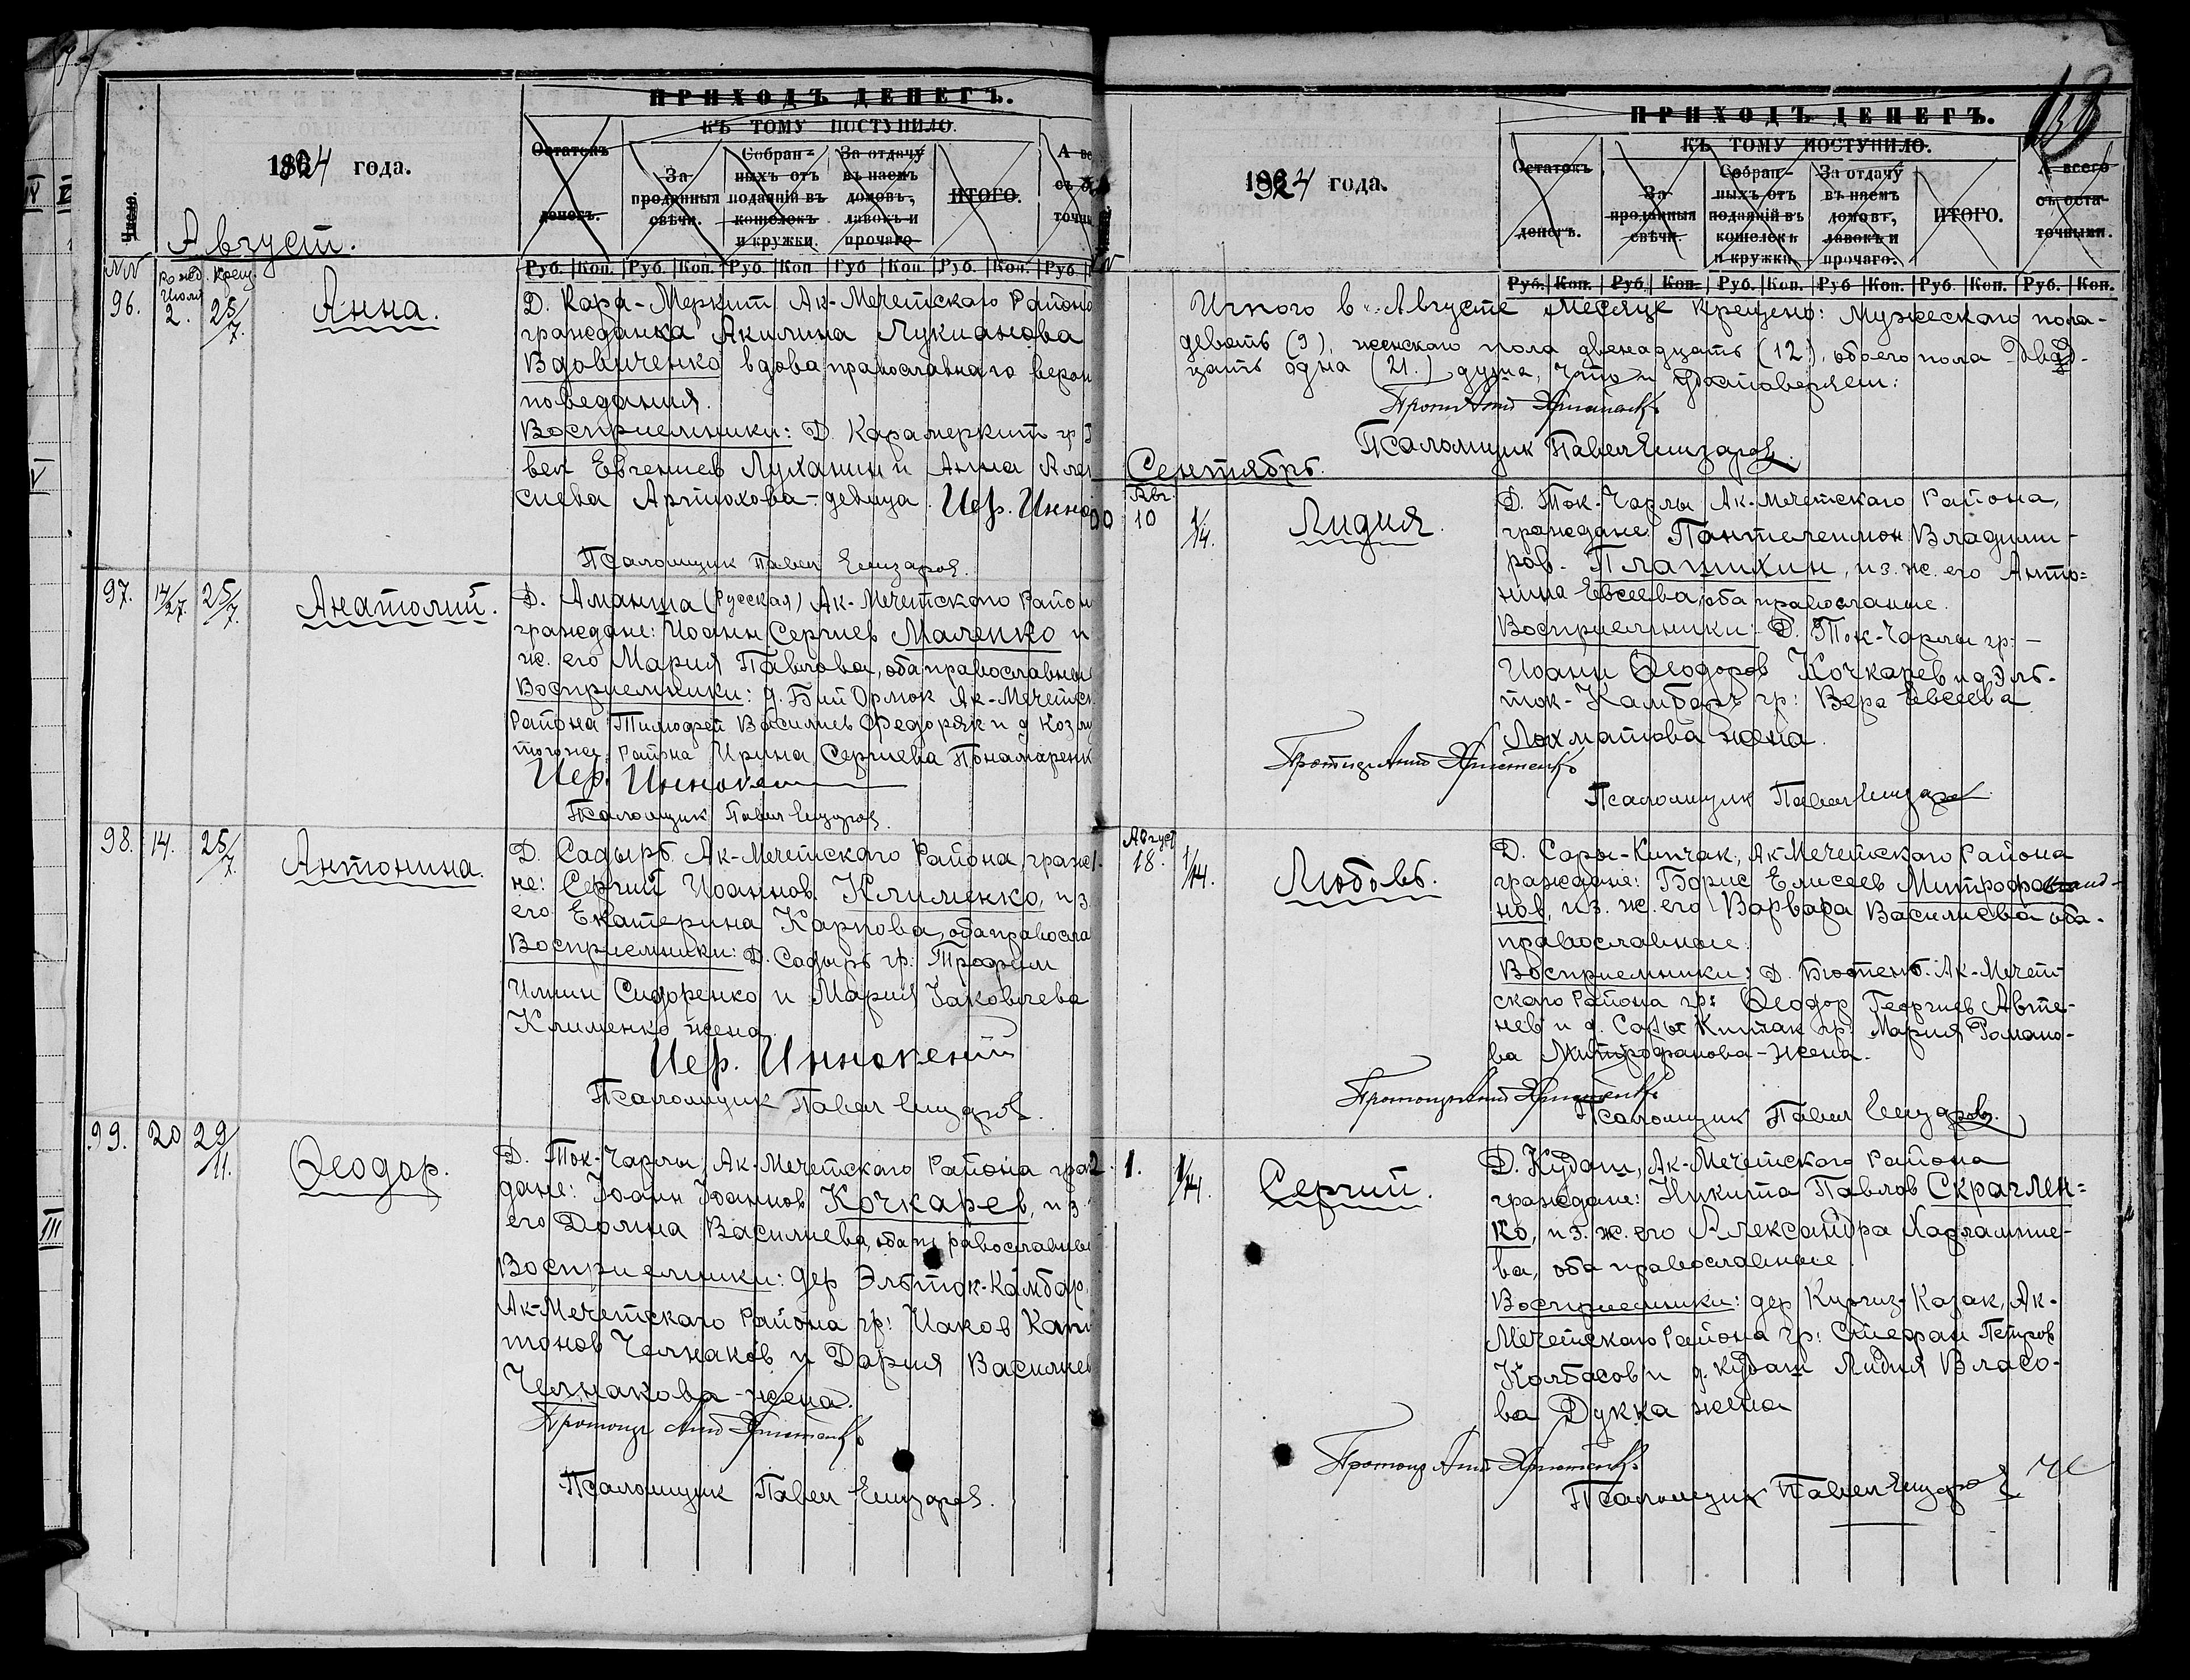 ПРИХОДЪ ДЕНЕГЪ.
КЪ ТОМУ ПОСТУПИЛО.
1924 года.
Число.
Остатокъ
денегъ.
За
проданныя
свѣчи.
Собран-
ныхъ отъ
подаяній въ
кошелекъ
и кружки.
За отдачу
въ наемъ
домовъ,
лавокъ и
прочаго
ИТОГО.
Август.
NN
Рожд. Крещ.
Руб. Коп. Руб. Коп. Руб. Коп Руб Коп. Руб. Коп. Руб.
96.
Июля
2.
25/7.
Анна.
Д. Кара-Меркит Ак-Мечетскаго Района
гражданка Акилина Лукианова
Вдовиченко вдова православнаго вероис
поведания.
Восприемники: Д. Карамеркит гр
Евгениев Луханин и Анна Алек
сиева Артюхова-девица. Иер. Инно
Псаломщик Павел Елизаров.
97. 14/27. 25/7.
Анатолий.
Д. Аманша (Русская) Ак-Мечетскаго Район
граждане: Иоанн Сергиев Маленко и
ж. его Мария Павлова, оба православные
Восприемники: д. Бий Орлюк Ак-Мечетск
Района Тимофей Василиев Федоряк и д
тогоже Района Ирина Сергиева Понамаренк
Иер. Иннокен
Псаломщик Павел Елизаров.
98. 14. 25/7.
Антонина.
Д. Садыр Ак-Мечетского Района, гражд
не: Сергий Иоаннов Клименко, и з.
его Екатерина Карпова, оба правосла
Восприемники: Д. Садыр гр: Трофим
Илиин Сидоренко и Мария Иаковлева
Клименко жена.
Иер. Иннокентий
Псаломщик Павел Елизаров.
99. 20 29/11.
Ѳеодор.
Д. Ток-Чарлы, Ак-Мечетскаго Района гра
дане: Иоанн Иоаннов Кочкарев, и з
его Домна Василиева, оба православные
Восприемники: дер Эльток-Камбар,
Ак-Мечетскаго Района гр: Иаков Капи
тонов Челнаков и Дария Василиев
Челнакова-жена.
Псаломщик Павел Елизаров.
ПРИХОДЪ ДЕНЕГЪ.
КЪ ТОМУ ПОСТУПИЛО.
1924 года.
Остатокъ
денегъ.
За
проданныя
свѣчи.
Собран-
ныхъ отъ
подаяній въ
кошелекъ
и кружки.
За отдачу
въ наемъ
домовъ,
лавокъ и
прочаго.
ИТОГО.
А всего
съ оста-
точными.
Руб. Коп. Руб. Коп. Руб. Коп. Руб Коп. Руб. Коп. Руб. Коп.
Итого в Августе Месяце Крещено: Мужескаго пола-
девять (9), женскаго пола двенадцать (12), обоего пола Двад-
цать одна (21.) душа, что и удостоверяем:
Псаломщик Павел Елизаров.
Сентябрь.
Авг.
10
1/14.
Лидия.
Д. Ток-Чарлы Ак-Мечетскаго Района,
граждане: Пантелеимон Владими-
ров. Плашихин, и з. ж. его Анто=
нина Евсеева, оба православные.
Восприемники: Д. Ток-Чарлы гр: -
Иоанн Ѳеодоров Кочкарев и д. Эль-
ток-Камбар гр: Вера Евсеева
Лохматова жена.
Псаломщик Павел Елизаров
Август
18.
1/14.
Любовь.
Д. Сары-Кипчак, Ак-Мечетскаго Района
граждане: Борис Елисеев Митрофа
нов, и з. ж. его Варвара Василиева оба-
православные.
Восприемники: Д. Бютень Ак-Мечет
скаго Района гр: Ѳеодор Георгиев Авте-
нев и д. Сары Кипчак гр: Мария Романо-
ва Митрофанова-жена.
Псаломщик Павел Елизаров.
1. 1/14.
Сергий.
Д. Кудаш, Ак-Мечетского Района
граждане: Никита Павлов Скраглен=
ко, и з. ж. его Александра Харлампие-
ва, оба православные.
Восприемники: дер Киргиз-Казак, Ак-
Мечетскаго Района гр: Стефан Петров
Колбасов и д. Кудаш Лидия Власо-
ва Дукка жена
Псаломщик Павел Елизаров